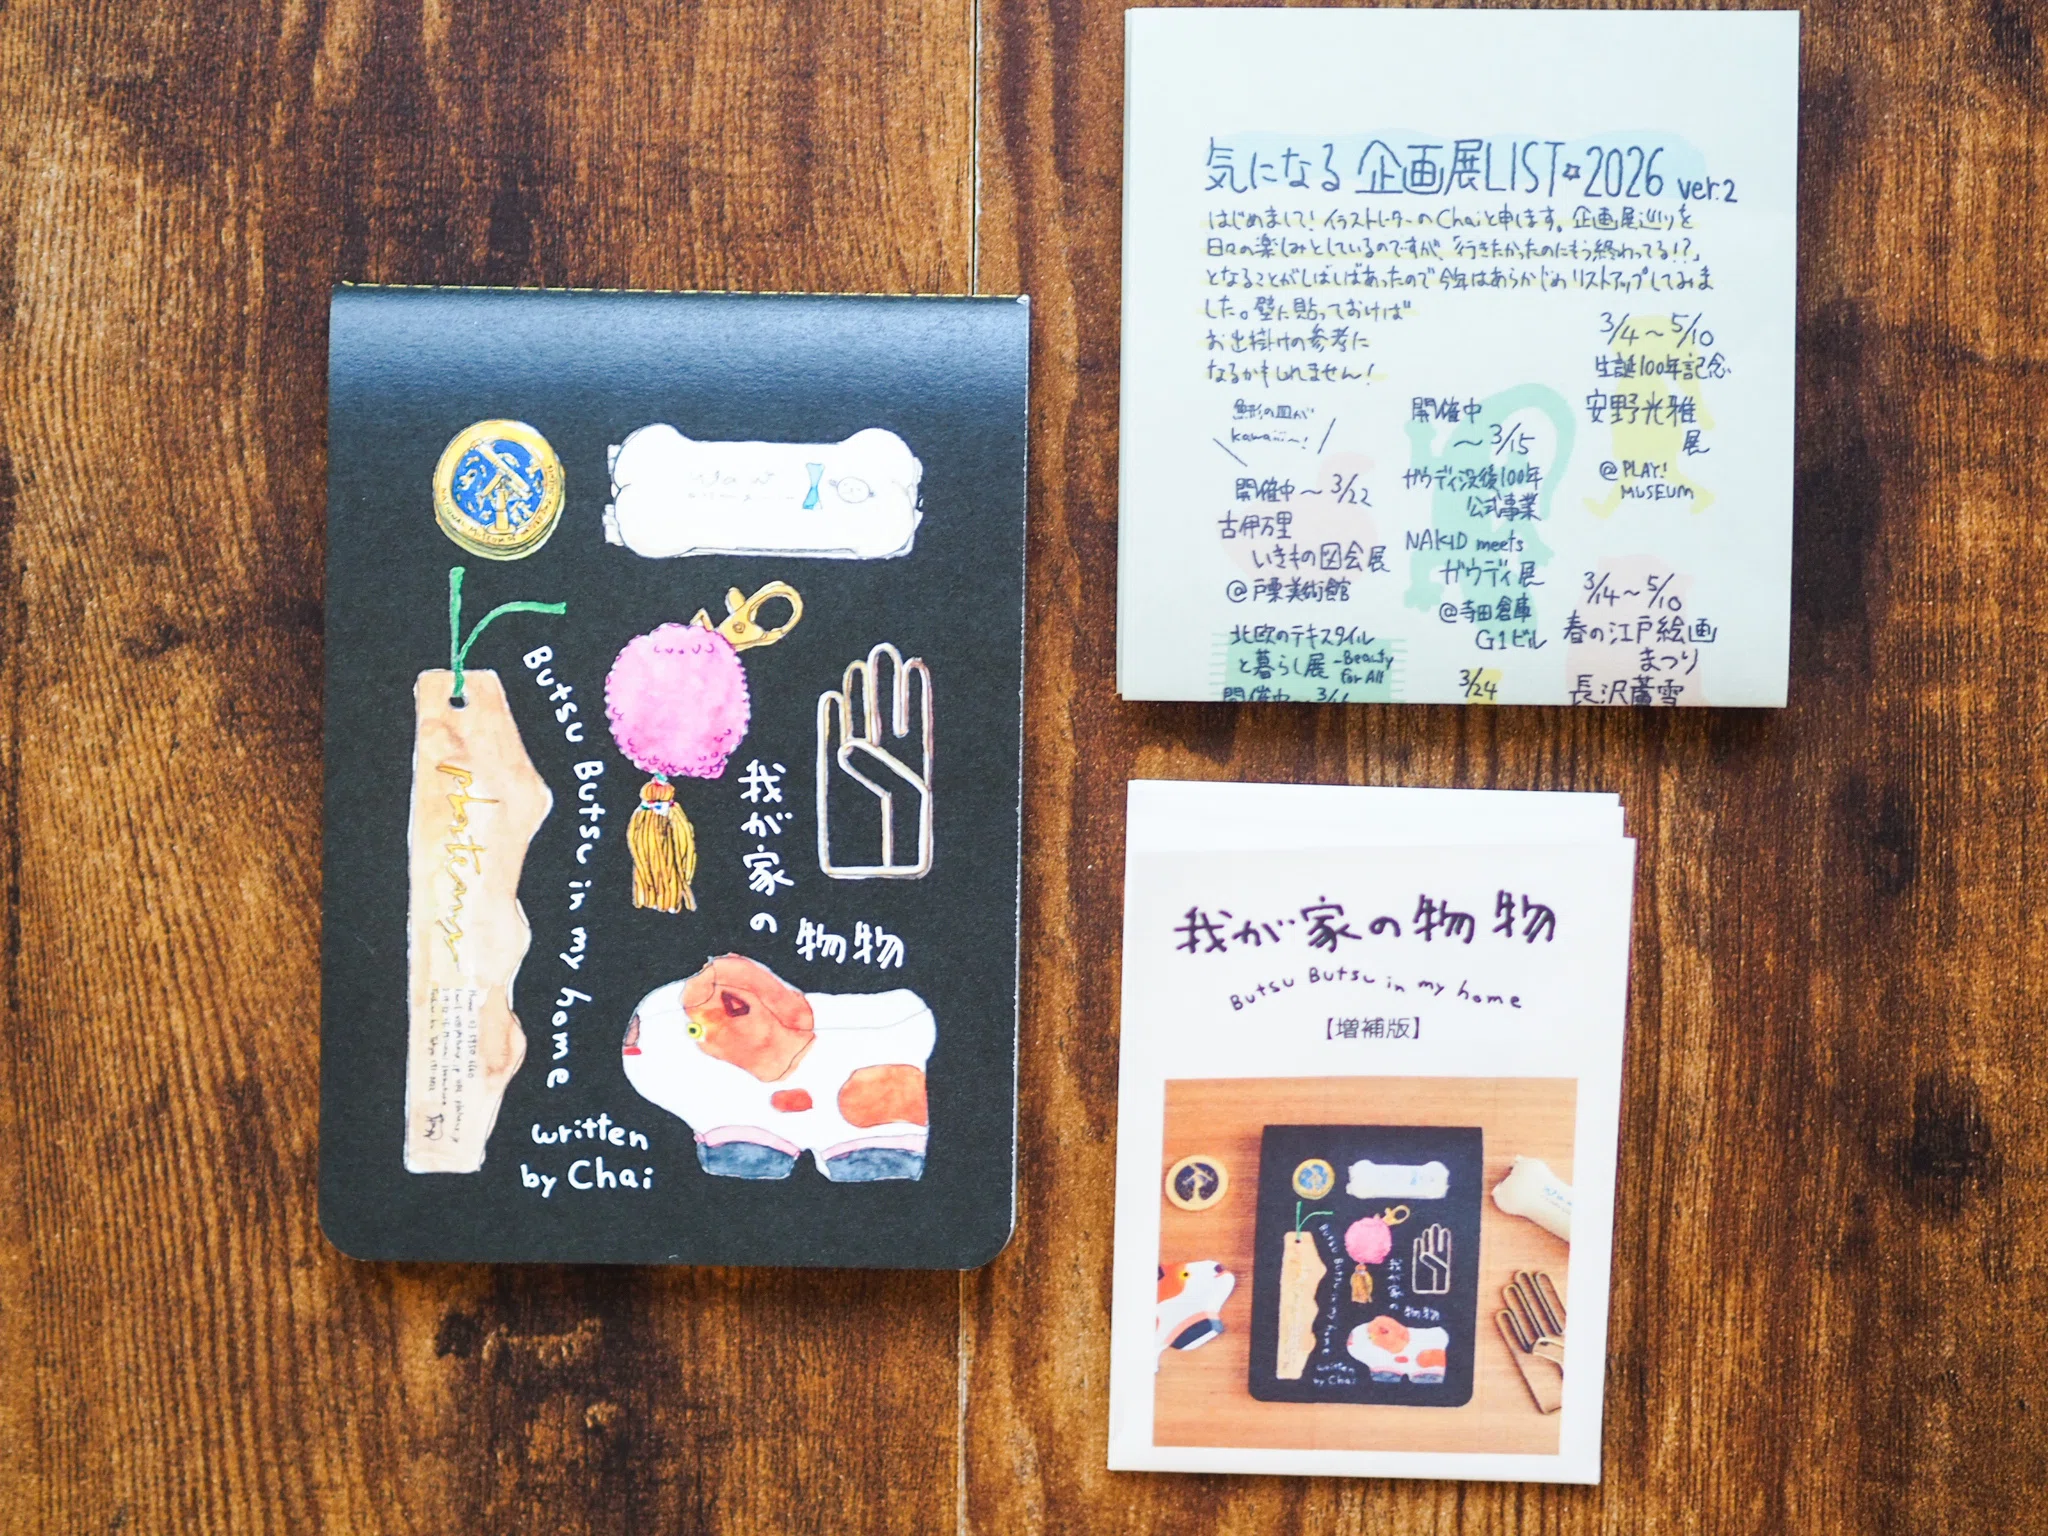 NATIONAL MUSEUM OF
phateaus
Butsu Butsu in my home
我が家の
物物
written
by Chai
気になる企画展LIST☆2026 ver.2
はじめまして！イラストレーターのChaiと申します。企画展巡りを
日々の楽しみとしているのですが、「行きたかったのにもう終わってる!?」
となることがしばしばあったので今年はあらかじめリストアップしてみま
した。壁に貼っておけば
お出掛けの参考に
なるかもしれません！
魚形の皿が
kawaiii〜！
開催中〜3/22
古伊万里
いきもの図会展
@戸栗美術館
北欧のテキスタイル
と暮らし展-Beauty
for All
開催中〜
開催中
〜3/15
ガウディ没後100年
公式事業
NAKED meets
ガウディ展
@寺田倉庫
G1ビル
3/24
3/4〜5/10
生誕100年記念
安野光雅
展
@PLAY!
MUSEUM
3/14〜5/10
春の江戸絵画
まつり
長沢蘆雪
我が家の物物
Butsu Butsu in my home
【増補版】
Butsu Butsu in my home
我が家の
物物
written
by Chai